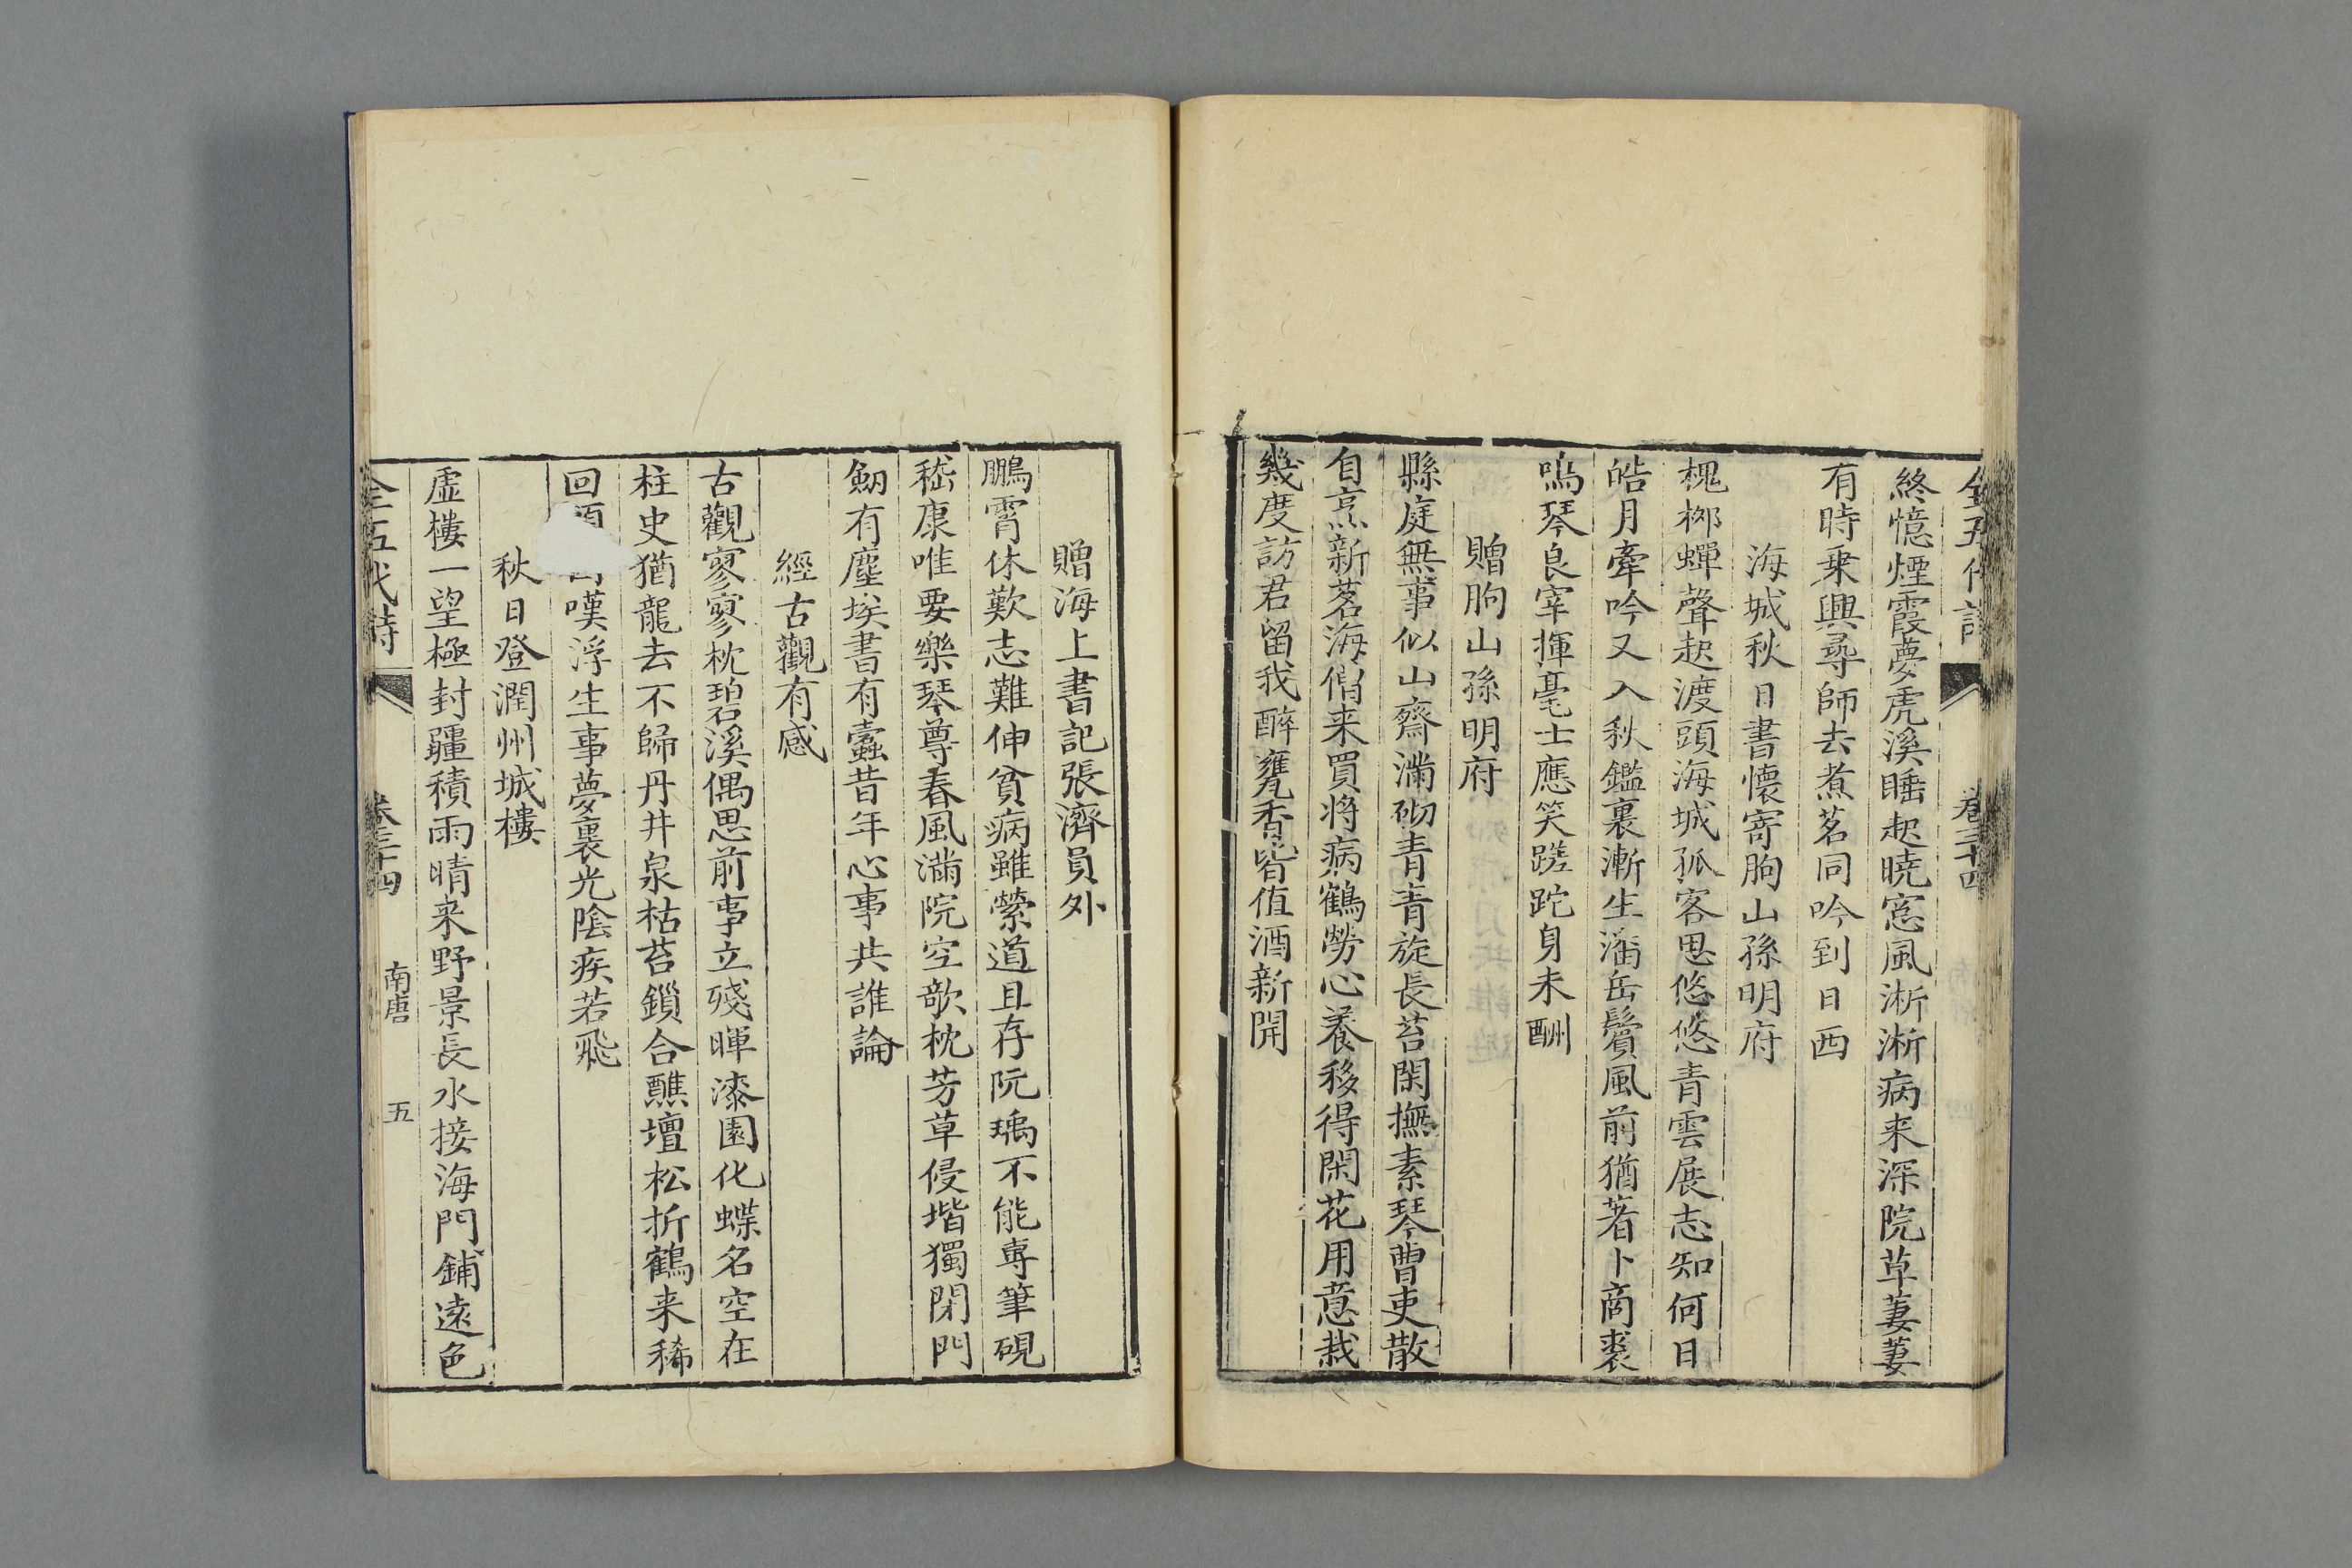 全五代詩 卷三十四
終憶煙霞夢虎溪睡起曉窓風淅淅病来深院草萋萋
有時乗興尋師去煮茗同吟到日西
海城秋日書懷寄朐山孫明府
槐栁蟬聲起渡頭海城孤客思悠悠青雲展志知何日
皓月牽吟又入秋鑑裏漸生潘岳鬢風前猶著卜商裘
鳴琴良宰揮毫士應笑蹉跎身未酬
贈朐山孫明府
縣庭無事似山齋滿砌青青旋長苔閑撫素琴曹吏散
自烹新茗海僧来買將病鶴勞心養移得閑花用意栽
幾度訪君留我醉甕香皆值酒新開
贈海上書記張濟員外
鵬霄休歎志難伸貧病雖縈道且存阮瑀不能專筆硯
嵇康唯要樂琴尊春風滿院空欹枕芳草侵堦獨閉門
劒有塵埃書有蠹昔年心事共誰論
經古觀有感
古觀寥寥枕碧溪偶思前事立殘暉漆園化蝶名空在
柱史猶龍去不歸丹井泉枯苔鎖合醮壇松折鶴来稀
回頭嘆浮生事夢裏光陰疾若飛
秋日登潤州城樓
虛樓一望極封疆積雨晴来野景長水接海門鋪遠色
全五代詩 卷三十四 南唐 五